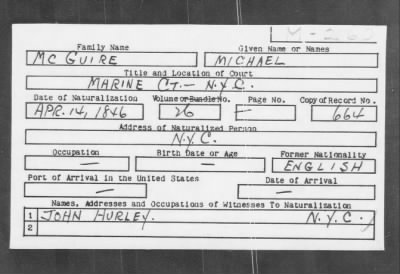 M-262
Family Name Given Name or Names
MC GUIRE MICHAEL
Title and Location of Court
MARINE CT. – N.Y.C.
Date of Naturalization Volume or Bundle No. Page No. Copy of Record No.
APR. 14, 1846 26 — 664
Address of Naturalized Person
N.Y.C.
Occupation Birth Date or Age Former Nationality
— — ENGLISH
Port of Arrival in the United States Date of Arrival
— —
Names, Addresses and Occupations of Witnesses To Naturalization
1 JOHN HURLEY. N.Y.C.
2